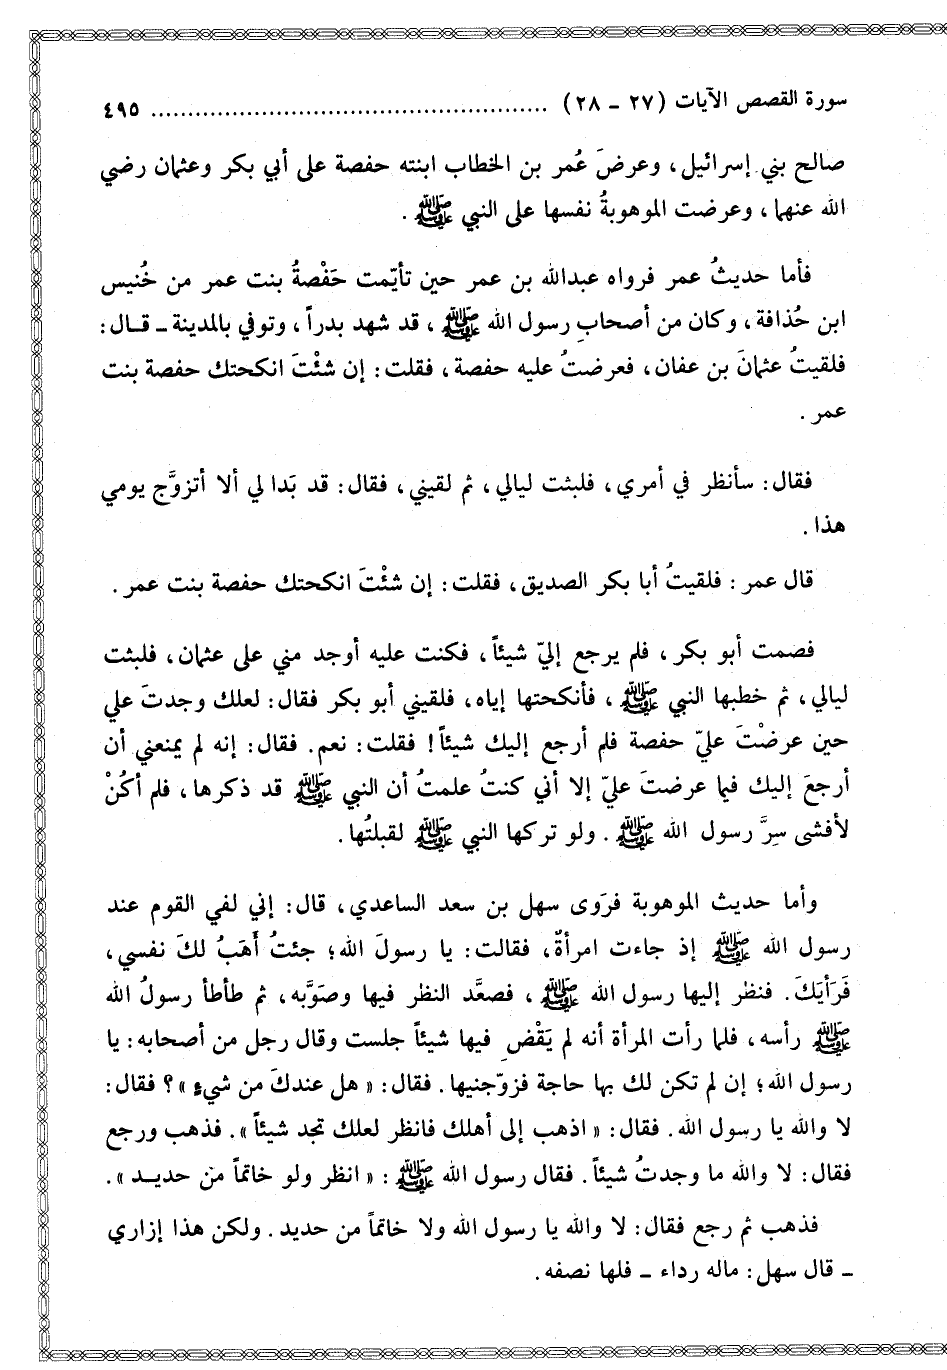 سورة القصص الآيات (٢٧ - ٢٨) ........................................................ ٤٩٥
صالح بني إسرائيل، وعرضَ عُمر بن الخطاب ابنته حفصة على أبي بكر وعثمان رضي
الله عنهما، وعرضت الموهوبةُ نفسها على النبي ﷺ.
فأما حديثُ عمر فرواه عبدالله بن عمر حين تأيّمت حَفْصةُ بنت عمر من خُنيس
ابن حُذافة، وكان من أصحابِ رسول الله ﷺ، قد شهد بدراً، وتوفي بالمدينة - قال:
فلقيتُ عثمانَ بن عفان، فعرضتُ عليه حفصة، فقلت: إن شئْتَ انكحتك حفصة بنت
عمر.
فقال: سأنظر في أمري، فلبثت ليالي، ثم لقيني، فقال: قد بَدا لي ألا أتزوَّج يومي
هذا.
قال عمر: فلقيتُ أبا بكر الصديق، فقلت: إن شئْتَ انكحتك حفصة بنت عمر.
فصمت أبو بكر، فلم يرجع إليّ شيئاً، فكنت عليه أوجد مني على عثمان، فلبثت
ليالي، ثم خطبها النبي ﷺ، فأنكحتها إياه، فلقيني أبو بكر فقال: لعلك وجدتَ علي
حين عرضْتَ عليّ حفصة فلم أرجع إليك شيئاً! فقلت: نعم. فقال: إنه لم يمنعني أن
أرجعَ إليك فيما عرضتَ عليّ إلا أني كنتُ علمتُ أن النبي ﷺ قد ذكرها، فلم أكُنْ
لأفشى سِرَّ رسول الله ﷺ. ولو تركها النبي ﷺ لقبلتُها.
وأما حديث الموهوبة فرَوى سهل بن سعد الساعدي، قال: إني لفي القوم عند
رسول الله ﷺ إذ جاءت امرأةٌ، فقالت: يا رسولَ الله؛ جئتُ أَهَبُ لكَ نفسي،
فَرَأيَكَ. فنظر إليها رسول الله ﷺ، فصعَّد النظر فيها وصَوَّبه، ثم طأطأ رسولُ الله
ﷺ رأسه، فلما رأت المرأة أنه لم يَقْضِ فيها شيئاً جلست وقال رجل من أصحابه: يا
رسول الله؛ إن لم تكن لك بها حاجة فزوّجنيها. فقال: «هل عندكَ من شيءٍ»؟ فقال:
لا والله يا رسول الله. فقال: «اذهب إلى أهلك فانظر لعلك تجد شيئاً». فذهب ورجع
فقال: لا والله ما وجدتُ شيئاً. فقال رسول الله ﷺ: «انظر ولو خاتماً من حديد».
فذهب ثم رجع فقال: لا والله يا رسول الله ولا خاتماً من حديد. ولكن هذا إزاري
- قال سهل: ماله رداء - فلها نصفه.